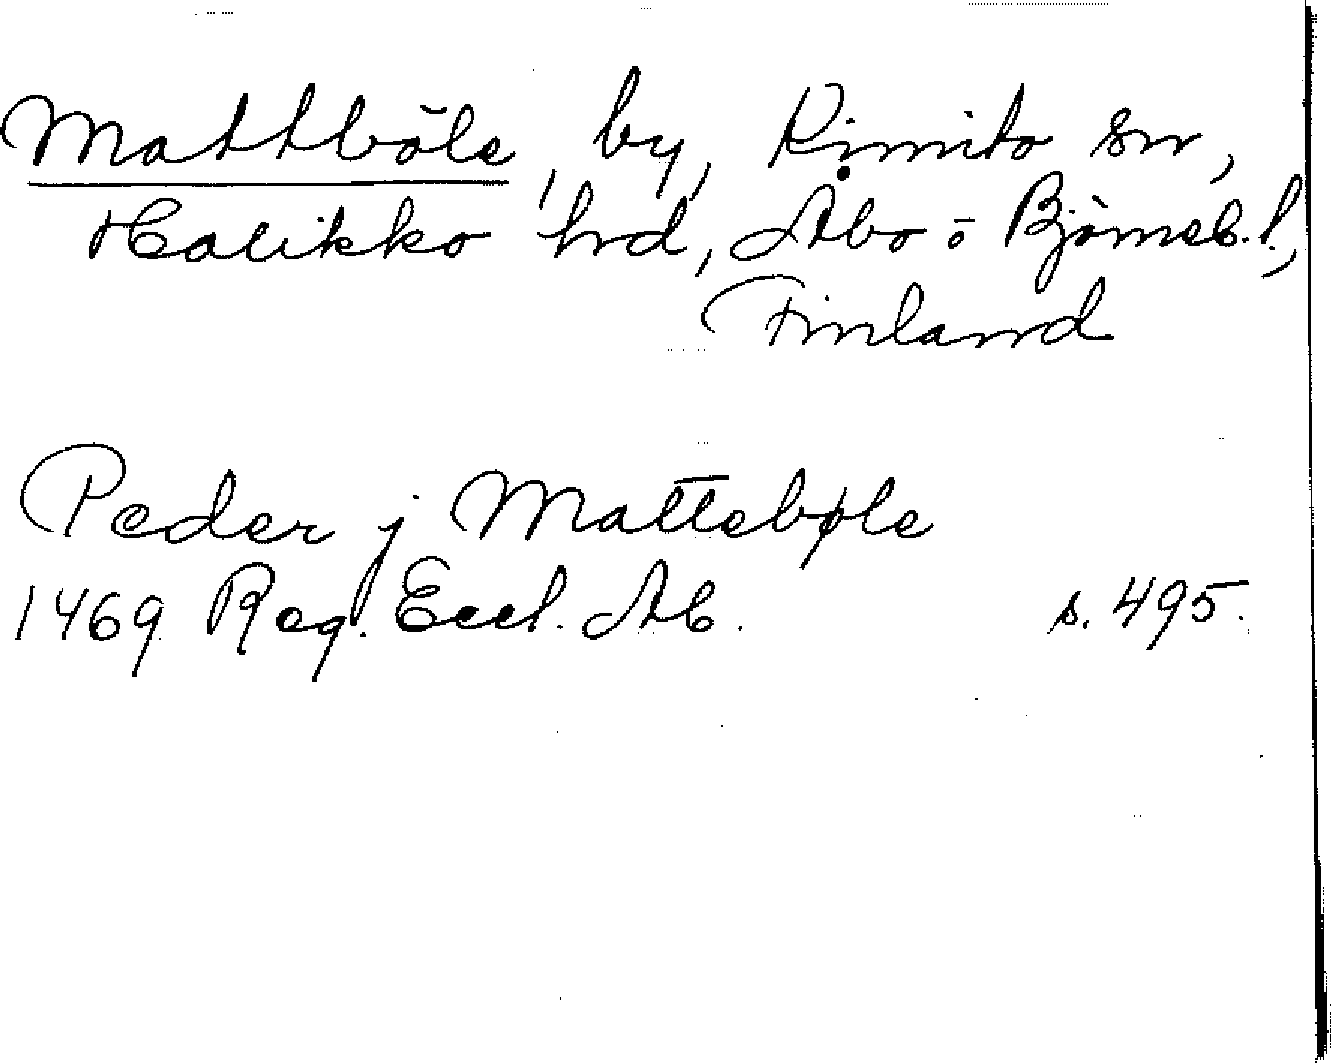 Mattböle, by, Kimito sn,
Halikko hrd, Åbo o Björneb. l.,
Finland
Peder j Mattebøle
1469 Reg. Eccl. Ab. s. 495.